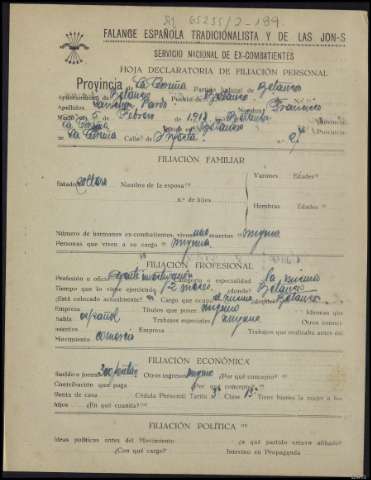 65235/2-189
FALANGE ESPAÑOLA TRADICIONALISTA Y DE LAS JON-S
SERVICIO NACIONAL DE EX-COMBATIENTES
HOJA DECLARATORIA DE FILIACIÓN PERSONAL
Provincia de La Coruña Partido Judicial de Betanzos
Ayuntamiento de Betanzos Pueblo de Betanzos
Apellidos Sanchez Pardo Nombre Francisco
Nació el 5 de Febrero de 1.913 en Betanzos
La Coruña Betanzos Provincia
La Coruña Calle
FILIACIÓN FAMILIAR
Estado soltero Nombre de la esposa
Varones Edades
n.º de hijos
Hembras Edades
Número de hermanos ex-combatientes, vivos uno muertos ninguno
Personas que viven a su cargo ninguna
FILIACIÓN PROFESIONAL
Profesión u oficio o especialidad La misma
Tiempo que la viene ejerciendo 2 meses ¿dónde? Betanzos
¿Está colocado actualmente? Cargo que ocupa el mismo Betanzos
Empresa Títulos que posee ninguno Idiomas que
habla español Trabajos especiales ninguno Otros
Empresa Trabajos que realizaba antes del
Movimiento comercio
FILIACIÓN ECONÓMICA
Sueldo o jornal Otros ingresos ninguno ¿Por qué concepto?
Contribución que paga ¿Por qué concepto?
Renta de casa Cédula Personal: Tarifa Clase Tiene bienes la mujer o los
hijos ¿En qué cuantía?
FILIACIÓN POLÍTICA
Ideas políticas antes del Movimiento ¿a qué partido estuvo afiliado?
¿Con qué cargo? Intervino en Propaganda